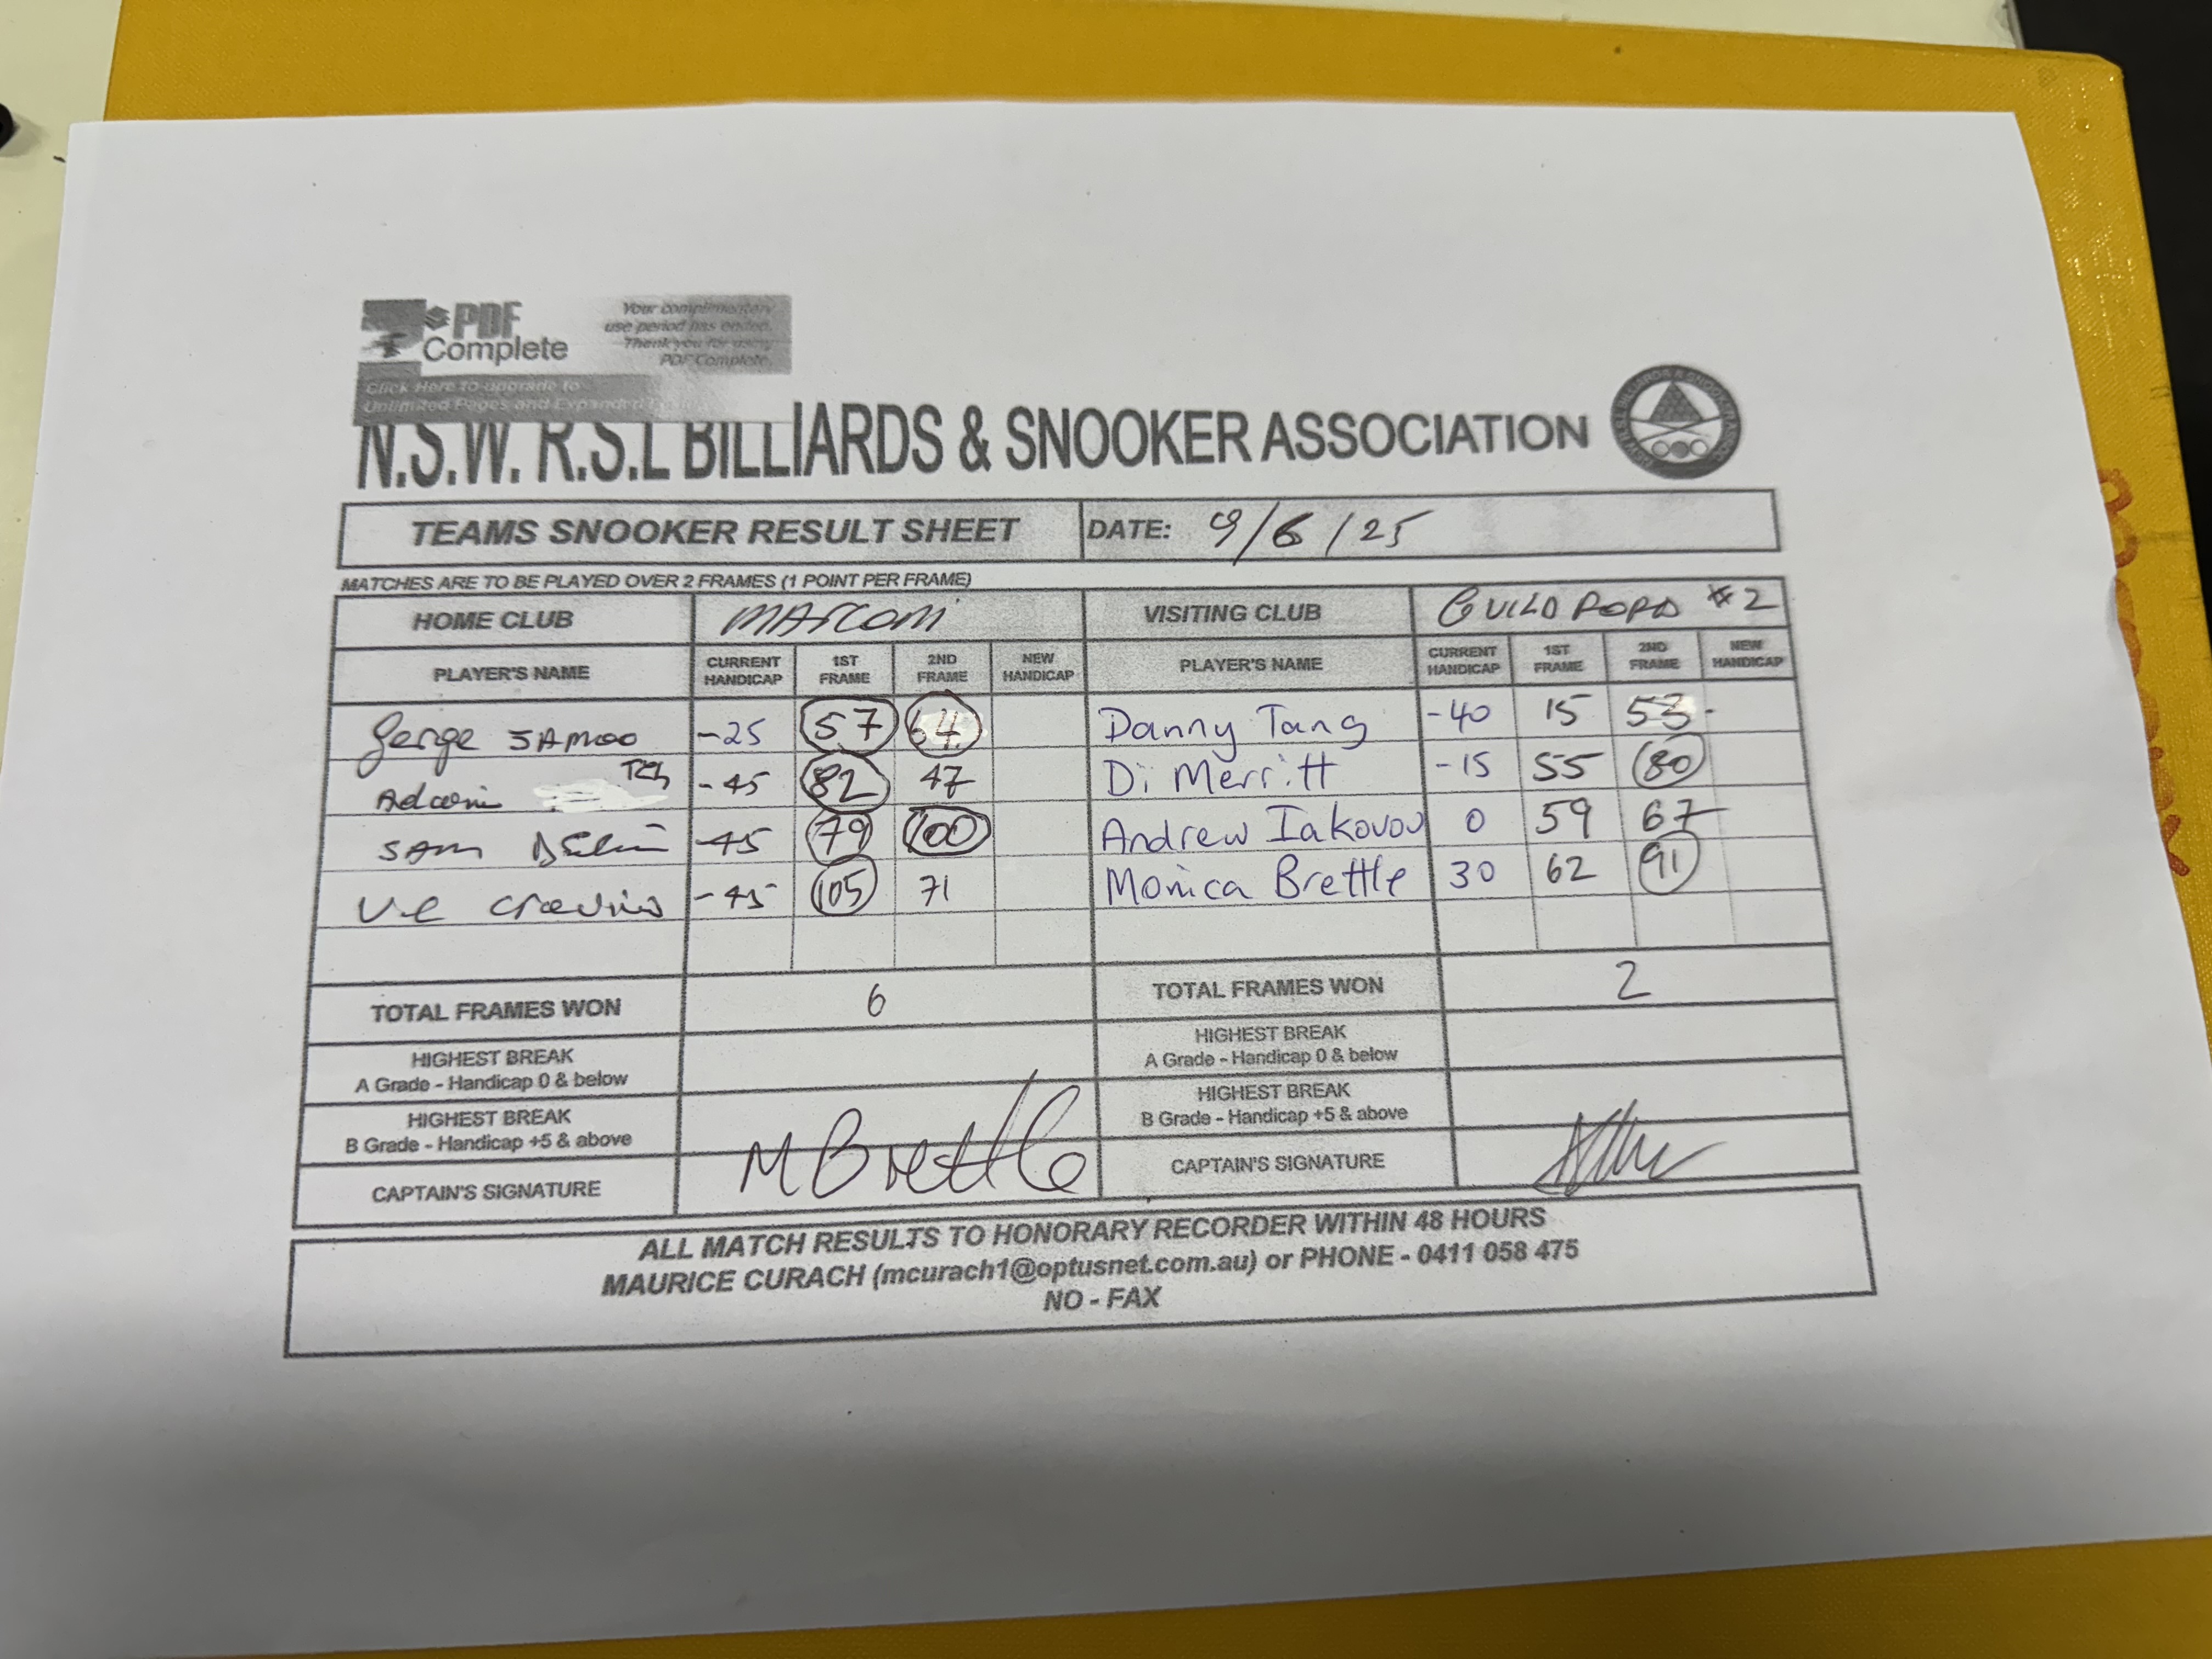 PDF Complete
Your complimentary
use period has ended.
Thank you for using
PDF Complete.
Click Here to upgrade to
Unlimited Pages and Expanded
N.S.W. R.S.L BILLIARDS & SNOOKER ASSOCIATION
TEAMS SNOOKER RESULT SHEET DATE: 9/6/25
MATCHES ARE TO BE PLAYED OVER 2 FRAMES (1 POINT PER FRAME)
HOME CLUB MARCONI VISITING CLUB GUILDFORD #2
PLAYER'S NAME CURRENT HANDICAP 1ST FRAME 2ND FRAME NEW HANDICAP PLAYER'S NAME CURRENT HANDICAP 1ST FRAME 2ND FRAME NEW HANDICAP
George SAMOO -25 57 64 Danny Tang -40 15 53
-45 82 47 Di Merritt -15 55 80
SAM -45 79 100 Andrew Iakovou 0 59 67
-45 105 71 Monica Brettle 30 62 91
TOTAL FRAMES WON 6 TOTAL FRAMES WON 2
HIGHEST BREAK A Grade - Handicap 0 & below HIGHEST BREAK A Grade - Handicap 0 & below
HIGHEST BREAK B Grade - Handicap +5 & above HIGHEST BREAK B Grade - Handicap +5 & above
CAPTAIN'S SIGNATURE M Brettle CAPTAIN'S SIGNATURE
ALL MATCH RESULTS TO HONORARY RECORDER WITHIN 48 HOURS
MAURICE CURACH (mcurach1@optusnet.com.au) or PHONE - 0411 058 475
NO - FAX